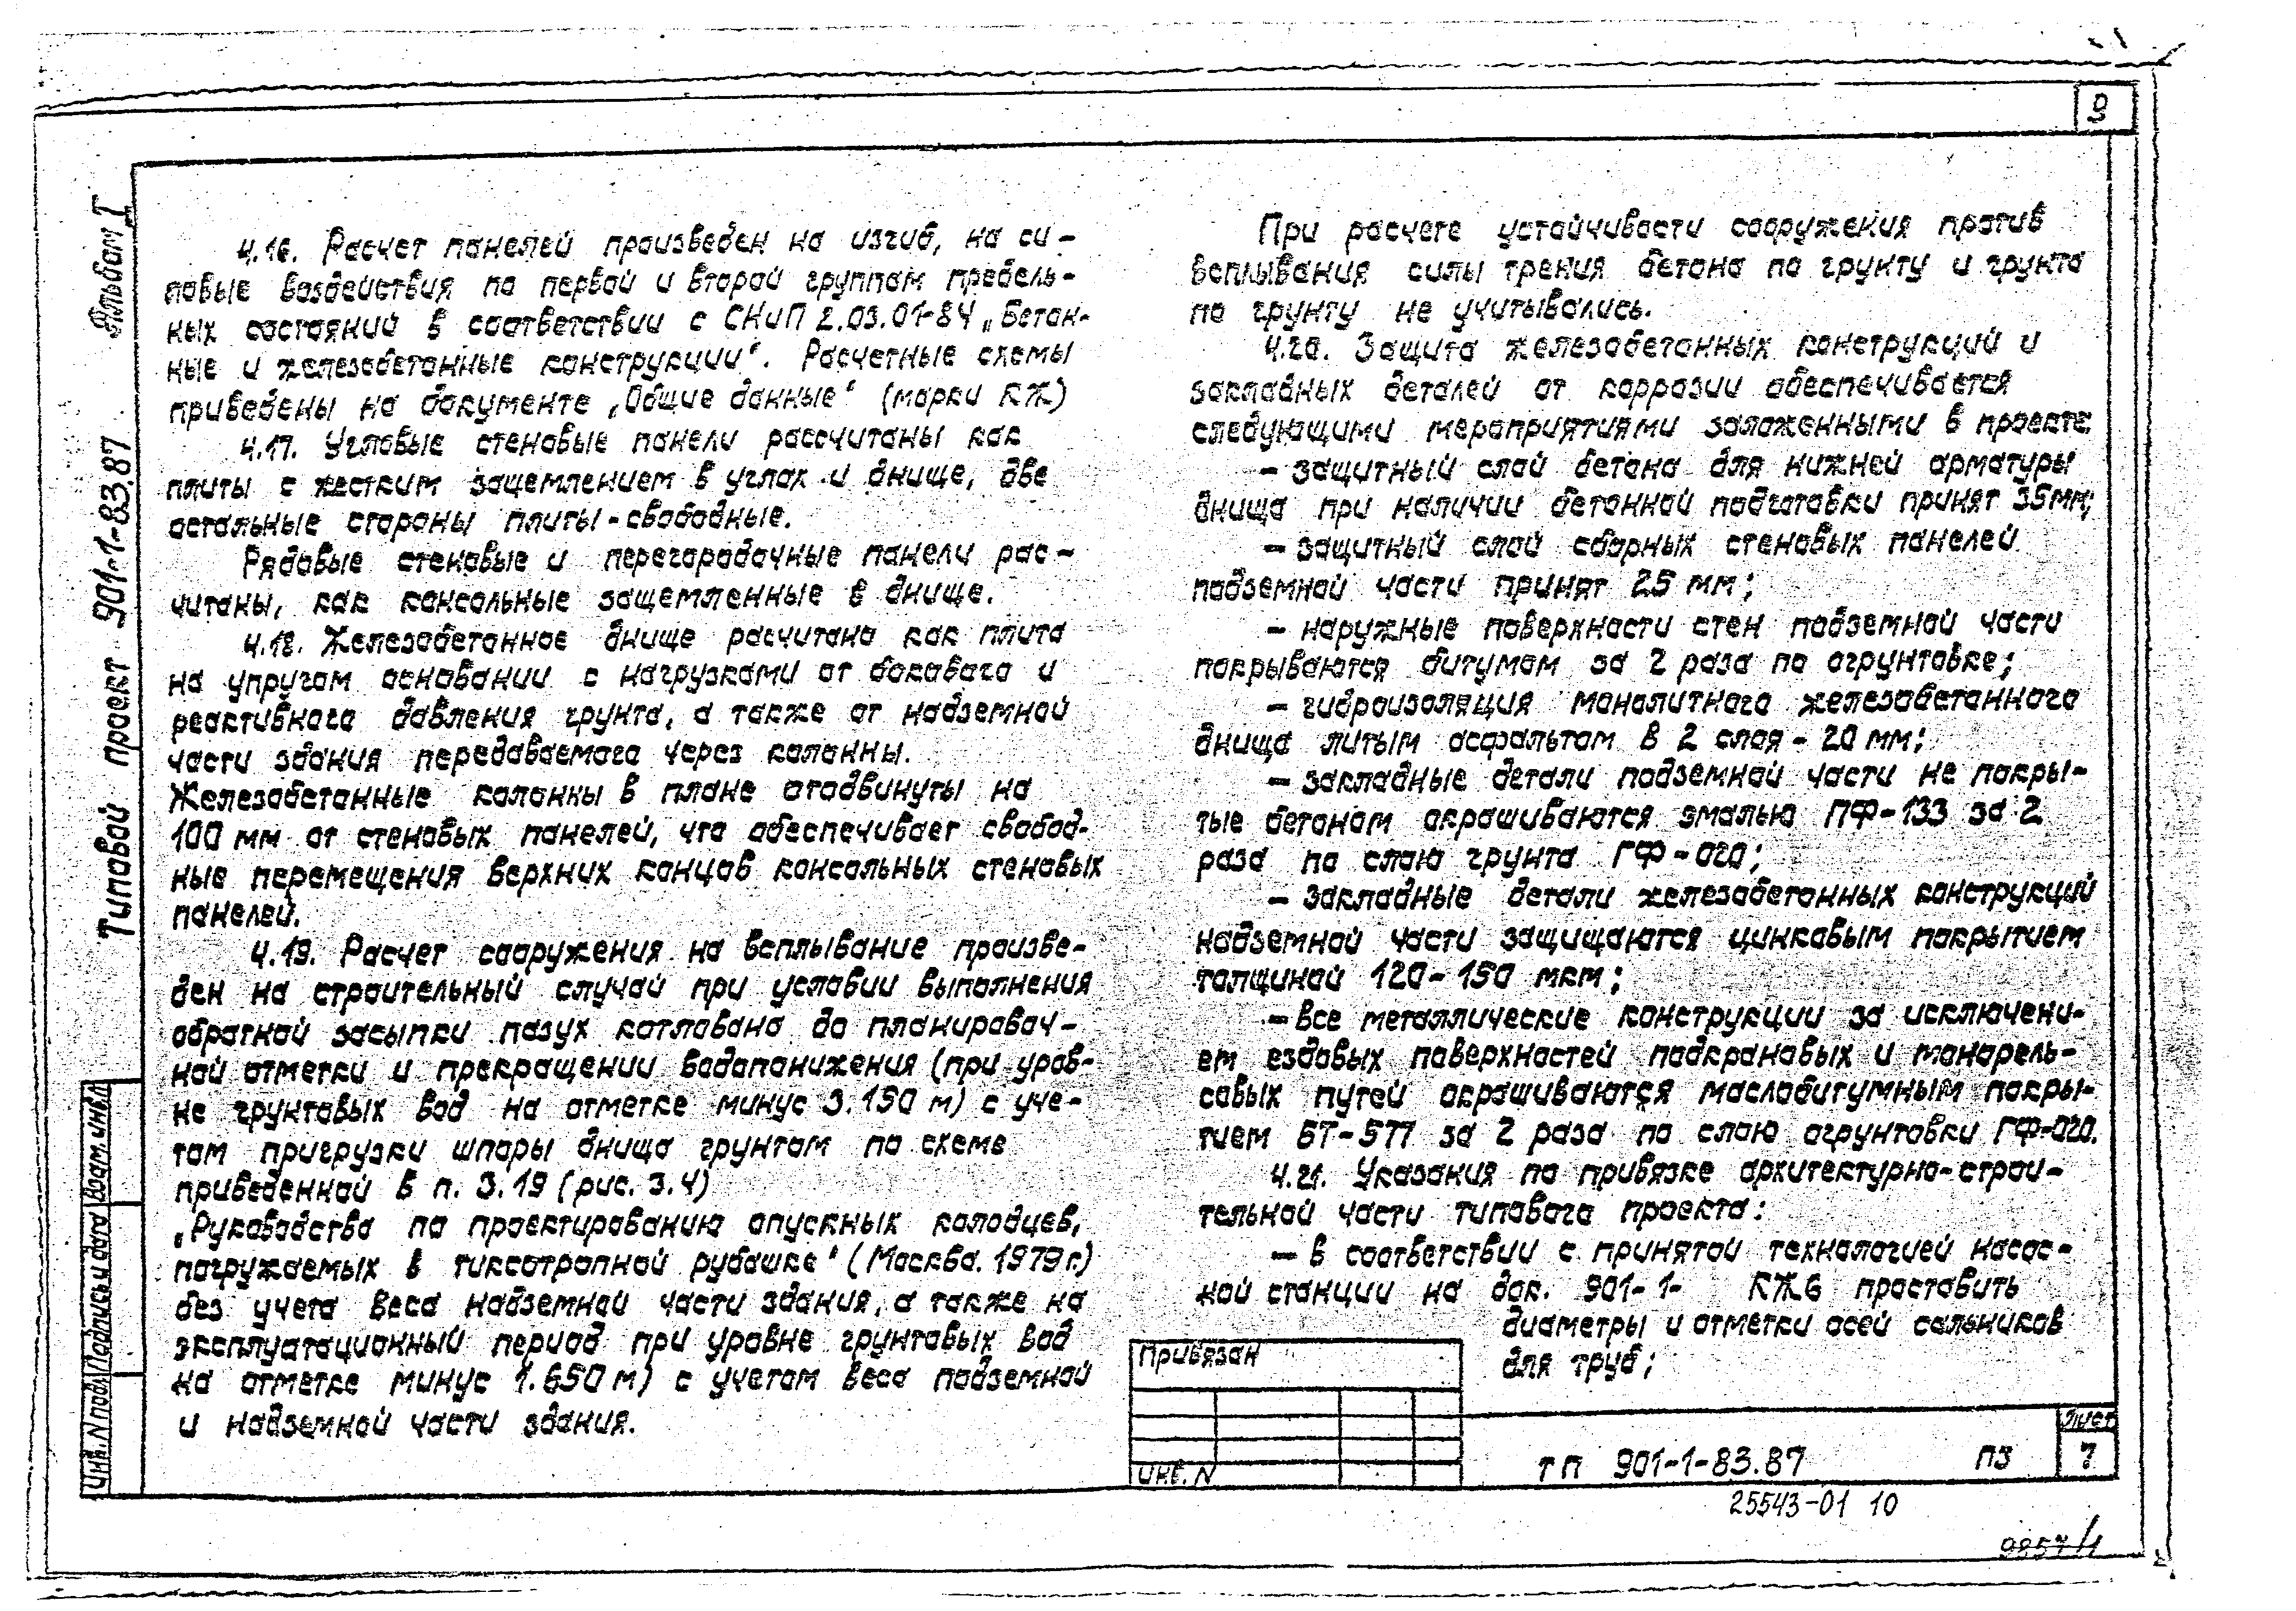 9
Альбом I
Типовой проект 901-1-83.87
4.16. Расчет панелей произведен на изгиб, на си-
ловые воздействия по первой и второй группам предель-
ных состояний в соответствии с СНиП 2.03.01-84 „Бетон-
ные и железобетонные конструкции“. Расчетные схемы
приведены на документе „Общие данные“ (марки КЖ)
4.17. Угловые стеновые панели рассчитаны как
плиты с жестким защемлением в углах и днище, две
остальные стороны плиты-свободные.
Рядовые стеновые и перегородочные панели рас-
читаны, как консольные защемленные в днище.
4.18. Железобетонное днище расчитано как плита
на упругом основании с нагрузками от бокового и
реактивного давления грунта, а также от надземной
части здания передаваемого через колонны.
Железобетонные колонны в плане отодвинуты на
100 мм от стеновых панелей, что обеспечивает свобод-
ные перемещения верхних концов консольных стеновых
панелей.
4.19. Расчет сооружения на всплывание произве-
ден на строительный случай при условии выполнения
обратной засыпки пазух котлована до планировоч-
ной отметки и прекращении водопонижения (при уров-
не грунтовых вод на отметке минус 3.150 м) с уче-
том пригрузки шпоры днища грунтом по схеме
приведенной в п. 3.19 (рис. 3.4)
„Руководство по проектированию опускных колодцев,
погружаемых в тиксотропной рубашке“ (Москва. 1979г.)
без учета веса надземной части здания, а также на
эксплуатационный период при уровне грунтовых вод
на отметке минус 1.650 м) с учетом веса подземной
и надземной части здания.
При расчете устойчивости сооружения против
всплывания силы трения бетона по грунту и грунта
по грунту не учитывались.
4.20. Защита железобетонных конструкций и
закладных деталей от коррозии обеспечивается
следующими мероприятиями заложенными в проекте:
- защитный слой бетона для нижней арматуры
днища при наличии бетонной подготовки принят 35мм;
- защитный слой сборных стеновых панелей
подземной части принят 25 мм;
- наружные поверхности стен подземной части
покрываются битумом за 2 раза по огрунтовке;
- гидроизоляция монолитного железобетонного
днища литым асфальтом в 2 слоя - 20 мм;
- закладные детали подземной части не покры-
тые бетоном окрашиваются эмалью ПФ-133 за 2
раза по слою грунта ГФ-020;
- закладные детали железобетонных конструкций
надземной части защищаются цинковым покрытием
толщиной 120-150 мкм;
- все металлические конструкции за исключени-
ем ездовых поверхностей подкрановых и монорель-
совых путей окрашиваются маслобитумным покры-
тием БТ-577 за 2 раза по слою огрунтовки ГФ-020.
4.21. Указания по привязке архитектурно-строи-
тельной части типового проекта:
- в соответствии с принятой технологией насос-
ной станции на док. 901-1- КЖ6 проставить
диаметры и отметки осей сальников
для труб;
Привязан
Инв. N
ТП 901-1-83.87
ПЗ
Лист
7
Инв. N подл
Подпись и дата
Взам. инв. N
25543-01 10
9857/1